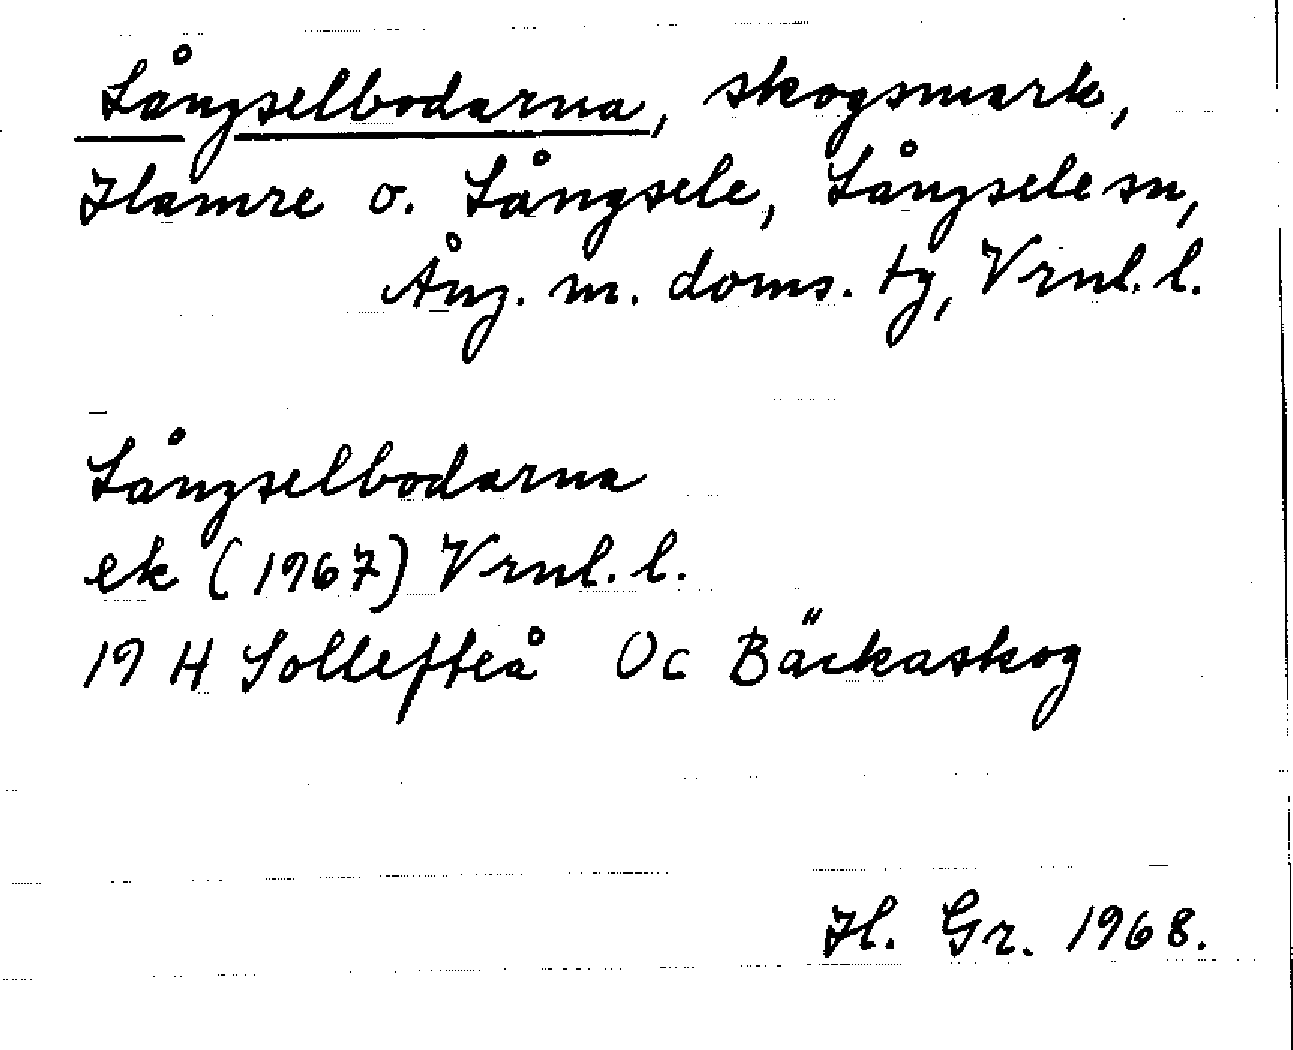 Långselbodarna, skogsmark,
Hamre o. Långsele, Långsele sn,
Ång. m. doms. tg, Vrnl. l.
Långselbodarna
ek (1967) Vrnl. l.
19 H Sollefteå Oc Bäckaskog
Hl. Gr. 1968.